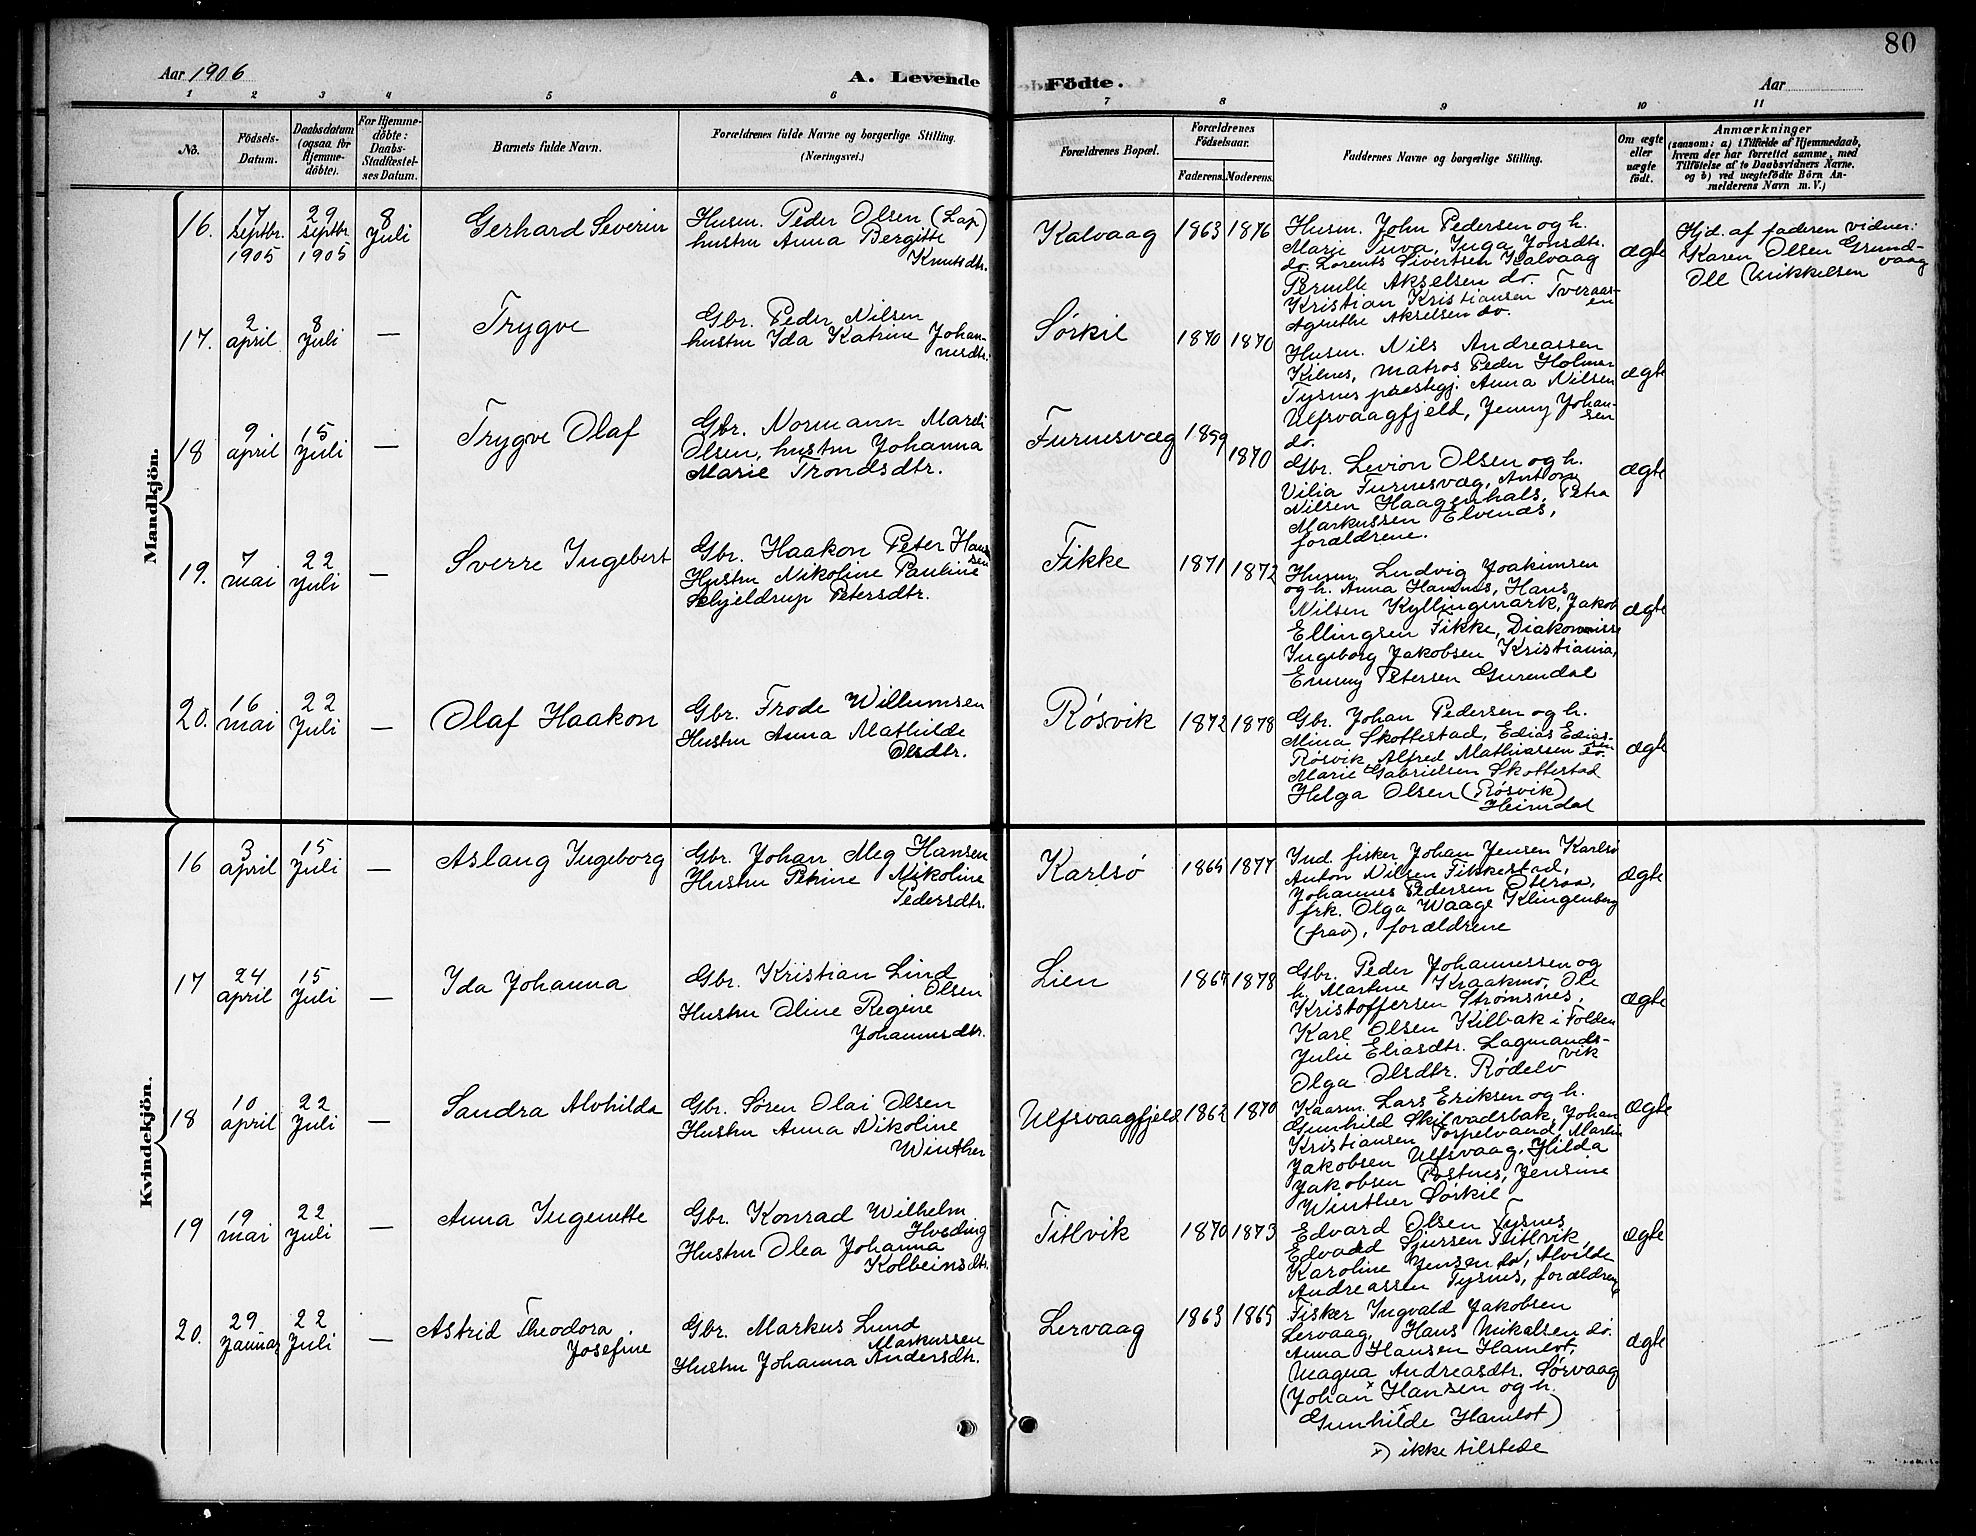 80
Aar 1906
A. Levende
Födte.
Aar
1 2 3 4 5 6 7 8 9 10 11
No.
Födsels-
Datum.
Daabsdatum
(ogsaa for
Hjemme-
döbte).
For Hjemme-
döbte:
Daabs-
Stadfæstel-
ses Datum.
Barnets fulde Navn.
Forældrenes fulde Navne og borgerlige Stilling.
(Næringsvei.)
Forældrenes Bopæl.
Forældrenes
Födselsaar.
Faderens. Moderens.
Faddernes Navne og borgerlige Stilling.
Om ægte
eller
uægte
födt.
Anmærkninger
(saasom: a) i Tilfælde af Hjemmedaab,
hvem der har forrettet samme, med
Tilföielse af to Daabsvidners Navne.
og b) ved uægtefödte Börn An-
melderens Navn m. V.)
Mandkjön.
16.
17
septbr.
1905
29
septbr
1905
8
Juli
Gerhard Severin
Husm. Peder Olsen (Lap)
hustru Anna Bergitte
Knutsdtr.
Kalvaag
1863 1876
Husm. John Pedersen og h.
Marie Tuva, Inga Jonsdtr.
do. Lorents Sivertsen Kalvaag
Pernille Akselsen do.
Kristian Kristiansen Tveraas-
en
Agnethe Akselsen do.
ægte
Hjd. af faderen vidner:
Karen Olsen Grund-
vaag
Ole Mikkelsen
17.
2
april
8
Juli
—
Trygve
Gbr. Peder Nilsen
hustru Ida Katrine Johan-
nesdtr.
Sørkil
1870 1870
Husm. Nils Andreassen
Kilnes, matros Peder Holmer
Tysnes præstegj. Anna Nilsen
Ulfsvaagfjeld, Jenny Johan-
sen
do.
ægte
18
9
april
15
Juli
—
Trygve Olaf
Gbr. Normann Mareli
Olsen, hustru Johanna
Marie Trondsdtr.
Furnesvæg
1870
Gbr. Levion Olsen og h.
Vilia Furnesvæg, Anton
Nilsen Haagenhals, Petra
Markussen Elvenes,
forældrene.
ægte
19.
7
mai
22
Juli
—
Sverre Ingebert
Gbr. Haakon Peter Han
sen
Hustru Nikoline Pauline
Schjeldrup Petersdtr.
Fikke
1871 1872
Husm. Ludvig Joakimsen
og h. Anna Havnes, Hans
Nilsen Kyllingmark, Jakob
Ellingsen Fikke, Diakonisse
Ingeborg Jakobsen Kristiania,
Emmy Petersen Gurendal
ægte
20.
16
mai
22
Juli
—
Olaf Haakon
Gbr. Frode Willumsen
Hustru Anna Mathilde
Olsdtr.
Røsvik
1872 1878
Gbr. Johan Pedersen og h.
Mina Skottestad, Edias Edias-
sen
Røsvik Alfred Mathiassen do.
Marie Gabrielsen Skottestad
Helga Olsen (Røsvik)
Heimdal
ægte
Kvindekjön.
16
3
april
15
Juli
—
Aslaug Ingeborg
Gbr. Johan Meg Hansen
Hustru Petrine Nikoline
Pedersdtr.
Karlsø
1865 1877
Ind. fisker Johan Jensen Karlsø
Anton Nilsen Fikkestad,
Johannes Pedersen Otraa,
frk. Olga Waage Klingenberg
(frav), forældrene
ægte
17
24
april
15
Juli
—
Ida Johanna
Gbr. Kristian Lind
Olsen
Hustru Oline Regine
Johannesdtr.
Lien
1878
Gbr. Peder Johannessen og
h. Martine Kraakmo, Ole
Kristoffersen Strømsnes,
Karl Olsen Kilbak i Folden
Julie Eliasdtr. Lagmands-
vik
Olga Olsdtr. Rødelv
ægte
18
10
april
22
Juli
—
Sandra Alvhilda
Gbr. Søren Olai Olsen
Hustru Anna Nikoline
Winther
Ulfsvaagfjeld
1862 1870
Kaarm. Lars Eriksen og h.
Gunhild Skilvadsbak, Johan
Kristiansen Torpelvand, Martin
Jakobsen Ulfsvaag, Hilda
Jakobsen Postnes, Jensine
Winther Sørkil
ægte
19
19
mai
22
Juli
—
Anna Ingenette
Gbr. Konrad Wilhelm
Hveding
Hustru Olea Johanna
Kolbeinsdtr.
Titlvik
1870 1873
Edvard Olsen Tysnes
Edvard Sjursen Titlvik,
Karoline Jensen do, Alvilde
Andreassen Tysnes, forældrene
ægte
20.
29
Januar
22
Juli
—
Astrid Theodora
Josefine
Gbr. Markus Lund
Markussen
Hustru Johanna Andersdtr.
Lervaag
1863 1865
Fisker Ingvald Jakobsen
Lervaag, Hans Mikalsen do.
Anna Hansen Hamlot,
Magna Andreasdtr. Sørvaag
(Johan x Hansen og h.
Gunhilde x Hamlot)
x) ikke tilstede
ægte